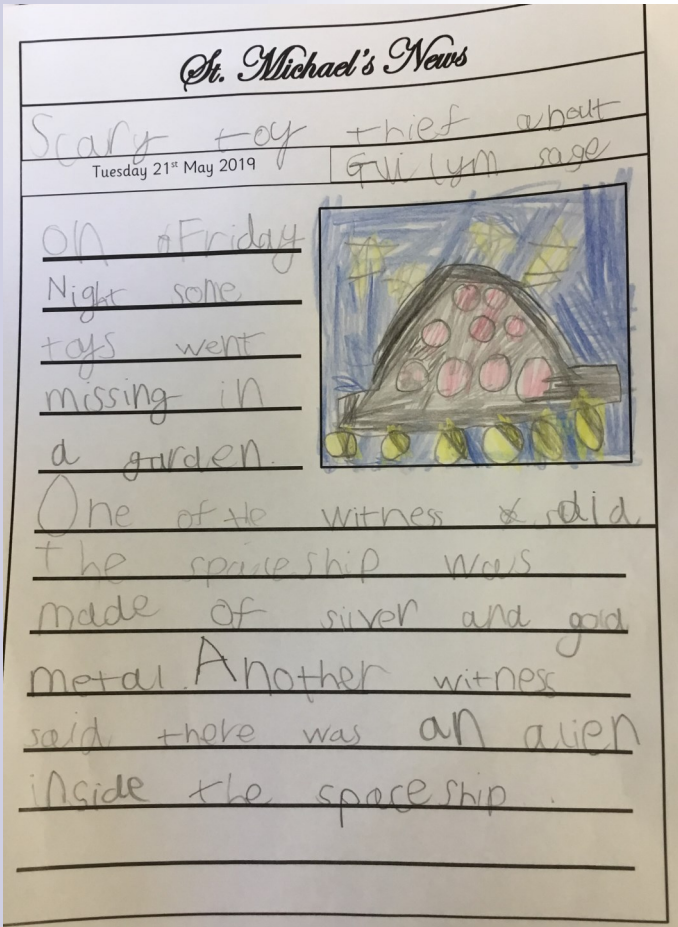 St. Michael's News
Scary toy thief about
Tuesday 21st May 2019
Guilym sage
on Friday
Night some
toys went
missing in
a garden.
One of the witness said
the spaceship was
made of silver and gold
metal. Another witness
said there was an alien
inside the spaceship.